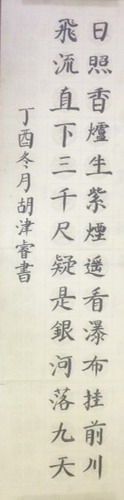 日照香爐生紫煙遥看瀑布挂前川
飛流直下三千尺疑是銀河落九天
丁酉冬月胡津睿書